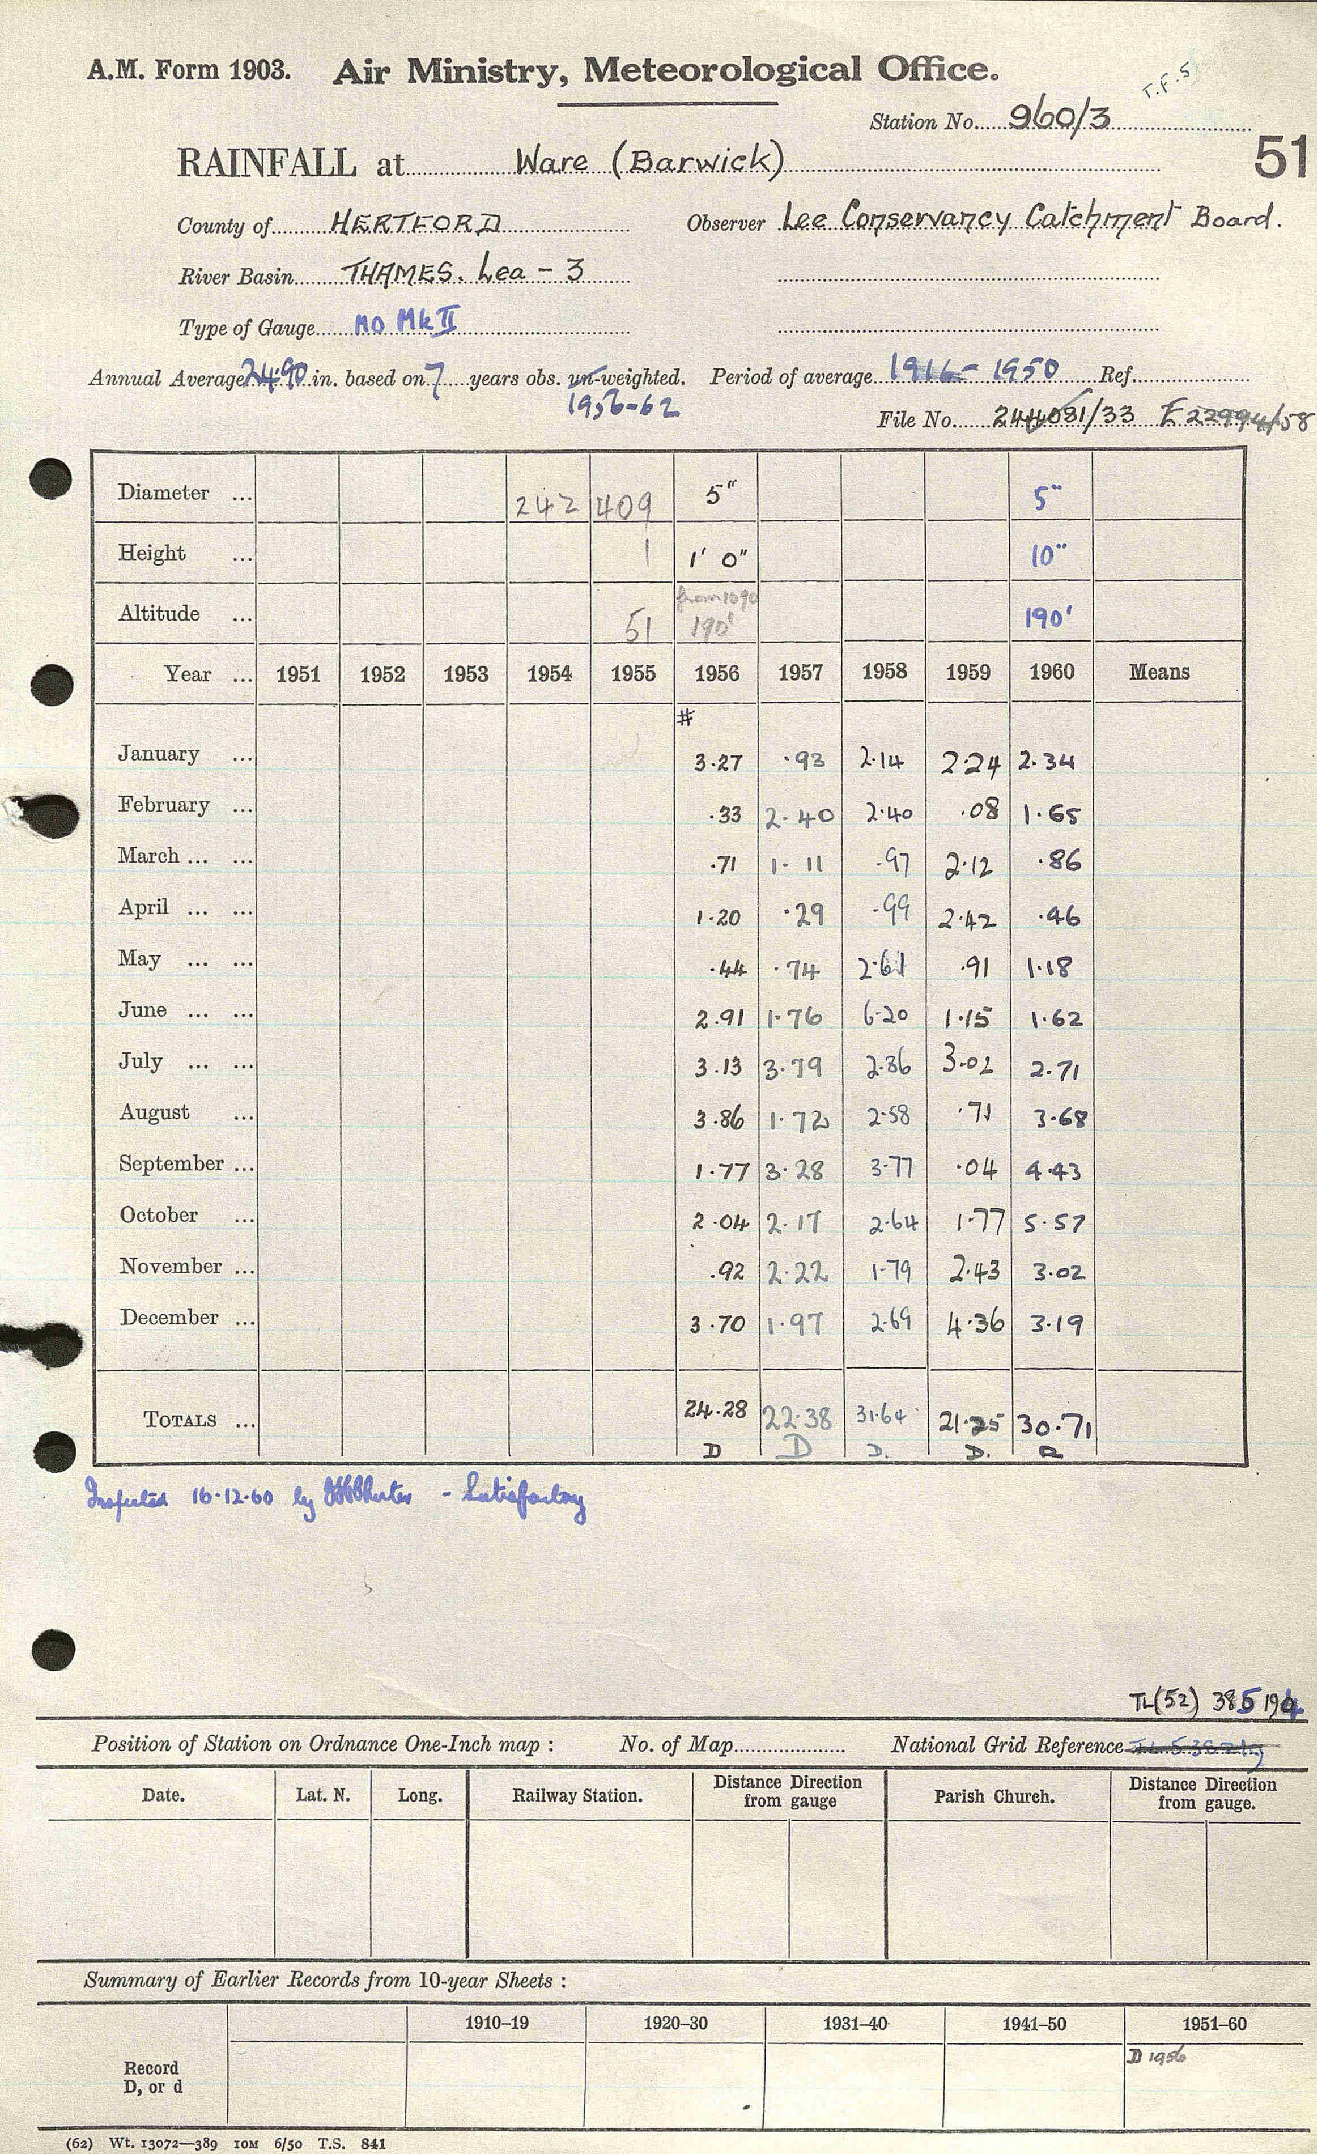 T.F.5
A.M. Form 1903. Air Ministry, Meteorological Office.
Station No. 960/3
51
RAINFALL at Ware (Barwick)
County of HERTFORD Observer Lee Conservancy Catchment Board.
River Basin THAMES. Lea - 3
Type of Gauge MO Mk II
Annual Average 24.90 in. based on 7 years obs. un-weighted. Period of average 1916 - 1950 Ref.
1956-62
File No. 244081/33 E22994/58
Diameter ... 242 409 5" 5"
Height ... 1 1' 0" 10"
Altitude ... 51 190' 190'
Year ... 1951 1952 1953 1954 1955 1956 1957 1958 1959 1960 Means
#
January ... 3.27 .93 2.14 2.24 2.34
February ... .33 2.40 2.40 .08 1.65
March ... ... .71 1.11 .97 2.12 .86
April ... ... 1.20 .29 .99 2.42 .46
May ... ... .44 .74 2.61 .91 1.18
June ... ... 2.91 1.76 6.20 1.15 1.62
July ... ... 3.13 3.79 2.86 3.02 2.71
August ... 3.86 1.72 2.58 .71 3.68
September ... 1.77 3.28 3.77 .04 4.43
October ... 2.04 2.17 2.64 1.77 5.57
November ... .92 2.22 1.79 2.43 3.02
December ... 3.70 1.97 2.69 4.36 3.19
TOTALS ... 24.28 22.38 31.64 21.25 30.71
D D D. D.
Inspected 16.12.60 by - Satisfactory
TL(52) 385 194
Position of Station on Ordnance One-Inch map : No. of Map National Grid Reference
Date. Lat. N. Long. Railway Station. Distance Direction from gauge Parish Church. Distance Direction from gauge.
Summary of Earlier Records from 10-year Sheets :
1910-19 1920-30 1931-40 1941-50 1951-60
Record D, or d
D 1956
(62) Wt. 13072—389 10M 6/50 T.S. 841